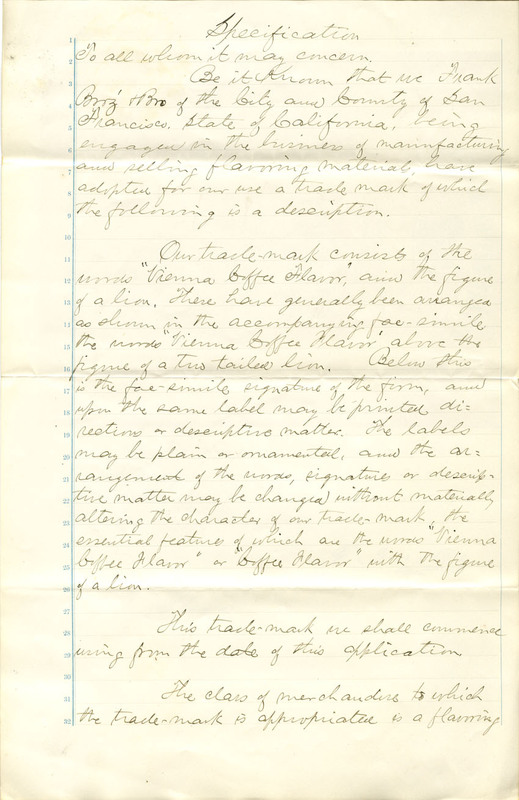 Specification
To all whom it may concern.
Be it Known that we Frank
Bro's & Bro of the City and County of San
Francisco, State of California, being
engaged in the business of manufacturing
and selling flavoring material, have
adopted for our use a trade mark of which
the following is a description.
Our trade-mark consists of the
words "Vienna Coffee Flavor", and the figure
of a lion. These have generally been arranged
as shown in the accompanying fac-simile
the words "Vienna Coffee Flavor" above the
figure of a two tailed lion. Below this
is the fac-simile signature of the firm, and
upon the same label may be printed di-
rections or descriptive matter. The labels
may be plain or ornamental, and the ar-
rangement of the words, signature or descrip-
tive matter may be changed without materially
altering the character of our trade-mark, the
essential feature of which are the words "Vienna
Coffee Flavor" or "Coffee Flavor" with the figure
of a lion.
This trade-mark we shall commence
using from the date of this application
The class of merchandise to which
the trade-mark is appropriated is a flavoring
1
2
3
4
5
6
7
8
9
10
11
12
13
14
15
16
17
18
19
20
21
22
23
24
25
26
27
28
29
30
31
32